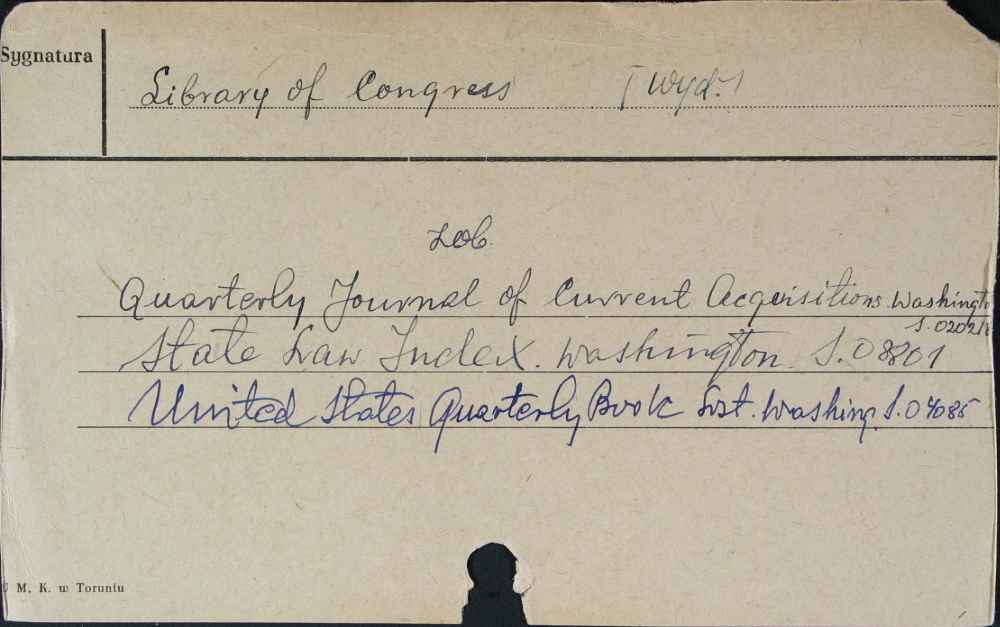 Sygnatura
Library of Congress [Wyd.]
Zob.
Quarterly Journal of Current Acquisitions. Washingto
S. 0202
State Law Index. Washington. S. 08801
United States Quarterly Book List. Washing. S. 04085
U M. K. w Toruniu